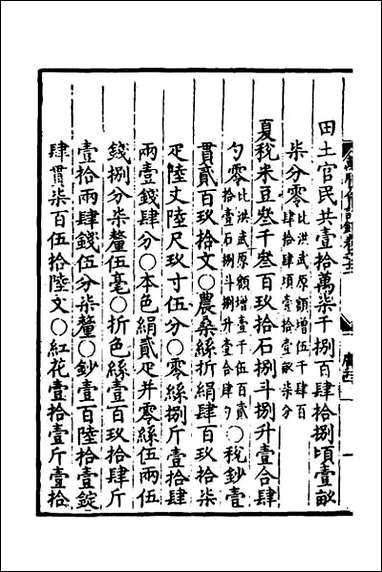 田土官民共壹拾萬柒千捌百肆拾捌頃壹畝
柒分零
比洪武原額增伍千肆百
肆拾肆頃壹十壹畝柒分
夏稅米豆叁千叁百玖拾石捌斗捌升壹合肆
勺零
比洪武原額增壹千伍百貳
拾壹石捌斗捌升壹合肆勺零
○稅鈔壹
貫貳百玖拾文○農桑絲折絹肆百玖拾柒
疋陸丈陸尺玖寸伍分○零絲捌斤壹拾肆
兩壹錢肆分○本色絹貳疋并零絲伍兩伍
錢捌分柒釐伍毫○折色絲壹百玖拾肆斤
壹拾兩肆錢伍分柒釐○鈔壹百陸拾壹錠
肆貫柒百伍拾陸文○紅花壹拾壹斤壹拾